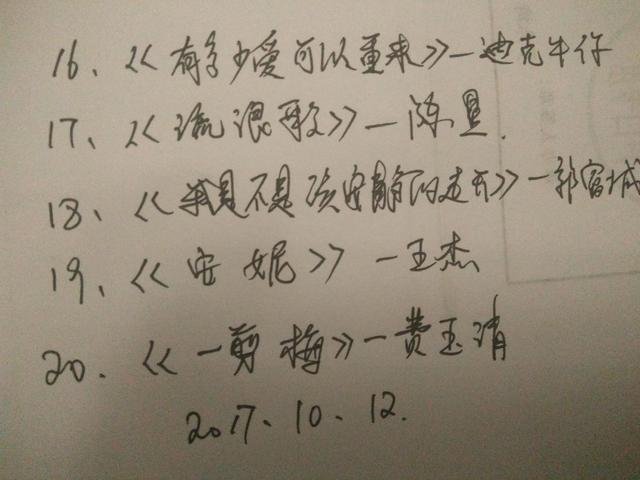 16、《有多少爱可以重来》—迪克牛仔
17、《流浪歌》—陈星.
18、《我是不是该安静的走开》—郭富城
19、《安妮》—王杰
20.《一剪梅》—费玉清
2017、10、12.